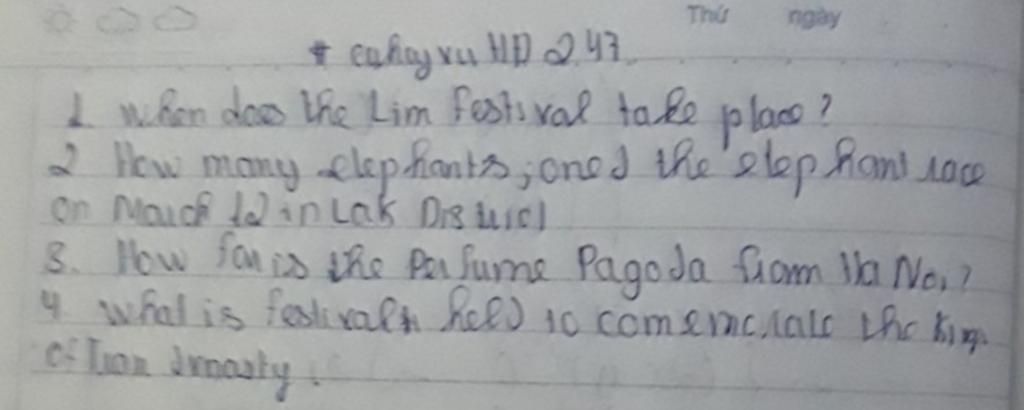 Thứ ngày
1 When does the Lim Festival take place?
2 How many elephants joined the elephant race
on March 12 in Lak District
3. How far is the Perfume Pagoda from Ha Noi?
4 what is festival held to the
of Tran